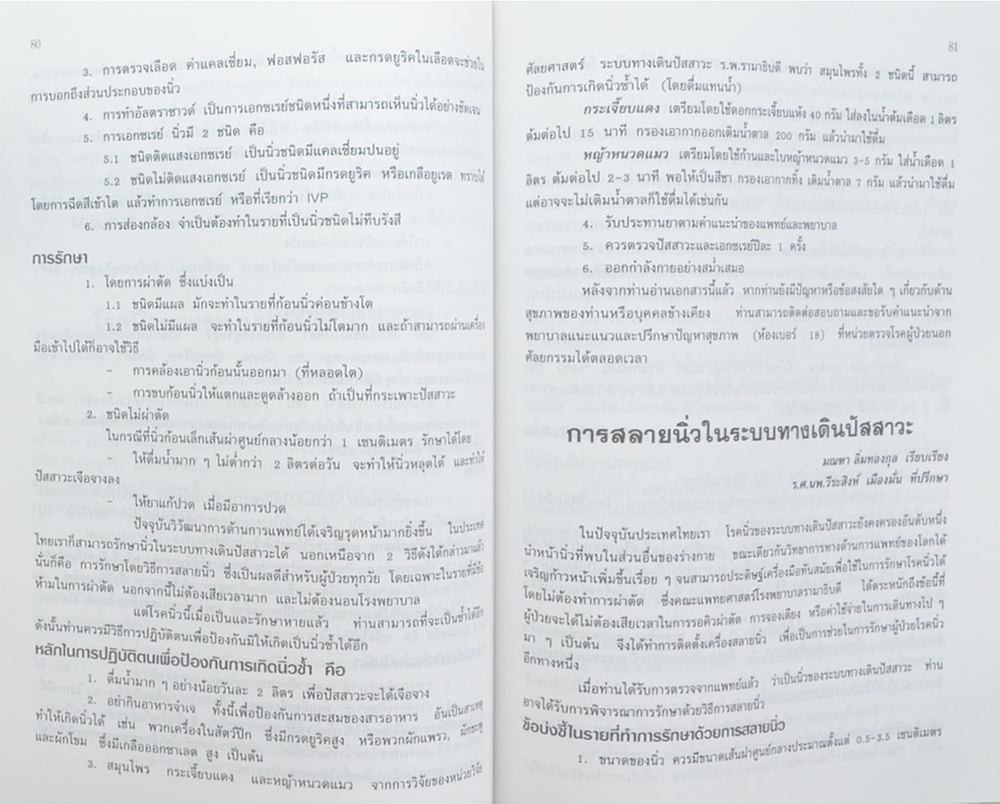 80
3. การตรวจเลือด ค่าแคลเซี่ยม, ฟอสฟอรัส และกรดยูริคในเลือดจะช่วยใน
การบอกถึงส่วนประกอบของนิ่ว
4. การทำอัลตราซาวด์ เป็นการเอกซเรย์ชนิดหนึ่งที่สามารถเห็นนิ่วได้อย่างชัดเจน
5. การเอกซเรย์ นิ่วมี 2 ชนิด คือ
5.1 ชนิดติดแสงเอกซเรย์ เป็นนิ่วชนิดมีแคลเซี่ยมปนอยู่
5.2 ชนิดไม่ติดแสงเอกซเรย์ เป็นนิ่วชนิดมีกรดยูริค หรือเกลือยูเรต ทราบได้
โดยการฉีดสีเข้าไต แล้วทำการเอกซเรย์ หรือที่เรียกว่า IVP
6. การส่องกล้อง จำเป็นต้องทำในรายที่เป็นนิ่วชนิดไม่ทึบรังสี
การรักษา
1. โดยการผ่าตัด ซึ่งแบ่งเป็น
1.1 ชนิดมีแผล มักจะทำในรายที่ก้อนนิ่วค่อนข้างโต
1.2 ชนิดไม่มีแผล จะทำในรายที่ก้อนนิ่วไม่โตมาก และถ้าสามารถผ่านเครื่อง
มือเข้าไปได้ก็อาจใช้วิธี
- การคล้องเอานิ่วก้อนนั้นออกมา (ที่หลอดไต)
- การขบก้อนนิ่วให้แตกและดูดล้างออก ถ้าเป็นที่กระเพาะปัสสาวะ
2. ชนิดไม่ผ่าตัด
ในกรณีที่นิ่วก้อนเล็กเส้นผ่าศูนย์กลางน้อยกว่า 1 เซนติเมตร รักษาได้โดย
- ให้ดื่มน้ำมาก ๆ ไม่ต่ำกว่า 2 ลิตรต่อวัน จะทำให้นิ่วหลุดได้ และทำให้
ปัสสาวะเจือจางลง
ให้ยาแก้ปวด เมื่อมีอาการปวด
ปัจจุบันวิวัฒนาการด้านการแพทย์ได้เจริญรุดหน้ามากยิ่งขึ้น ในประเทศ
ไทยเราก็สามารถรักษานิ่วในระบบทางเดินปัสสาวะได้ นอกเหนือจาก 2 วิธีดังได้กล่าวมาแล้ว
นั่นก็คือ การรักษาโดยวิธีการสลายนิ่ว ซึ่งเป็นผลดีสำหรับผู้ป่วยทุกวัย โดยเฉพาะในรายที่มีข้อ
ห้ามในการผ่าตัด นอกจากนี้ไม่ต้องเสียเวลามาก และไม่ต้องนอนโรงพยาบาล
แต่โรคนิ่วนี้เมื่อเป็นและรักษาหายแล้ว ท่านสามารถที่จะเป็นซ้ำได้อีก
ดังนั้นท่านควรมีวิธีการปฏิบัติตนเพื่อป้องกันมิให้เกิดเป็นนิ่วซ้ำได้อีก
หลักในการปฏิบัติตนเพื่อป้องกันการเกิดนิ่วซ้ำ คือ
1. ดื่มน้ำมาก ๆ อย่างน้อยวันละ 2 ลิตร เพื่อปัสสาวะจะได้เจือจาง
2. อย่ากินอาหารจำเจ ทั้งนี้เพื่อป้องกันการสะสมของสารอาหาร อันเป็นสาเหตุ
ทำให้เกิดนิ่วได้ เช่น พวกเครื่องในสัตว์ปีก ซึ่งมีกรดยูริคสูง หรือพวกผักแพรว, ผักชะพลู
และผักโขม ซึ่งมีเกลือออกซาเลต สูง เป็นต้น
3. สมุนไพร กระเจี๊ยบแดง และหญ้าหนวดแมว จากการวิจัยของหน่วยวิจัย
81
ศัลยศาสตร์ ระบบทางเดินปัสสาวะ ร.พ.รามาธิบดี พบว่า สมุนไพรทั้ง 2 ชนิดนี้ สามารถ
ป้องกันการเกิดนิ่วซ้ำได้ (โดยดื่มแทนน้ำ)
กระเจี๊ยบแดง เตรียมโดยใช้ดอกกระเจี๊ยบแห้ง 40 กรัม ใส่ลงในน้ำต้มเดือด 1 ลิตร
ต้มต่อไป 15 นาที กรองเอากากออกเติมน้ำตาล 200 กรัม แล้วนำมาใช้ดื่ม
หญ้าหนวดแมว เตรียมโดยใช้ก้านและใบหญ้าหนวดแมว 3-5 กรัม ใส่น้ำเดือด 1
ลิตร ต้มต่อไป 2-3 นาที พอให้เป็นสีชา กรองเอากากทิ้ง เติมน้ำตาล 7 กรัม แล้วนำมาใช้ดื่ม
แต่อาจจะไม่เติมน้ำตาลก็ใช้ดื่มได้เช่นกัน
4. รับประทานยาตามคำแนะนำของแพทย์และพยาบาล
5. ควรตรวจปัสสาวะและเอกซเรย์ปีละ 1 ครั้ง
6. ออกกำลังกายอย่างสม่ำเสมอ
หลังจากท่านอ่านเอกสารนี้แล้ว หากท่านยังมีปัญหาหรือข้อสงสัยใด ๆ เกี่ยวกับด้าน
สุขภาพของท่านหรือบุคคลข้างเคียง ท่านสามารถติดต่อสอบถามและขอรับคำแนะนำจาก
พยาบาลแนะแนวและปรึกษาปัญหาสุขภาพ (ห้องเบอร์ 18) ที่หน่วยตรวจโรคผู้ป่วยนอก
ศัลยกรรมได้ตลอดเวลา
การสลายนิ่วในระบบทางเดินปัสสาวะ
มณฑา ลิ่มทองกุล เรียบเรียง
ร.ศ.นพ.วีระสิงห์ เมืองมั่น ที่ปรึกษา
ในปัจจุบันประเทศไทยเรา โรคนิ่วของระบบทางเดินปัสสาวะยังคงครองอันดับหนึ่ง
นำหน้านิ่วที่พบในส่วนอื่นของร่างกาย ขณะเดียวกันวิทยาการทางด้านการแพทย์ของโลกได้
เจริญก้าวหน้าเพิ่มขึ้นเรื่อย ๆ จนสามารถประดิษฐ์เครื่องมือทันสมัยเพื่อใช้ในการรักษาโรคนิ่วได้
โดยไม่ต้องทำการผ่าตัด ซึ่งคณะแพทยศาสตร์โรงพยาบาลรามาธิบดี ได้ตระหนักถึงข้อนี้ที่
ผู้ป่วยจะได้ไม่ต้องเสียเวลาในการรอคิวผ่าตัด การจองเตียง หรือค่าใช้จ่ายในการเดินทางไป ๆ
มา ๆ เป็นต้น จึงได้ทำการติดตั้งเครื่องสลายนิ่ว เพื่อเป็นการช่วยในการรักษาผู้ป่วยโรคนิ่ว
อีกทางหนึ่ง
เมื่อท่านได้รับการตรวจจากแพทย์แล้ว ว่าเป็นนิ่วของระบบทางเดินปัสสาวะ ท่าน
อาจได้รับการพิจารณาการรักษาด้วยวิธีการสลายนิ่ว
ข้อบ่งชี้ในรายที่ทำการรักษาด้วยการสลายนิ่ว
1. ขนาดของนิ่ว ควรมีขนาดเส้นผ่าศูนย์กลางประมาณตั้งแต่ 0.5-3.5 เซนติเมตร